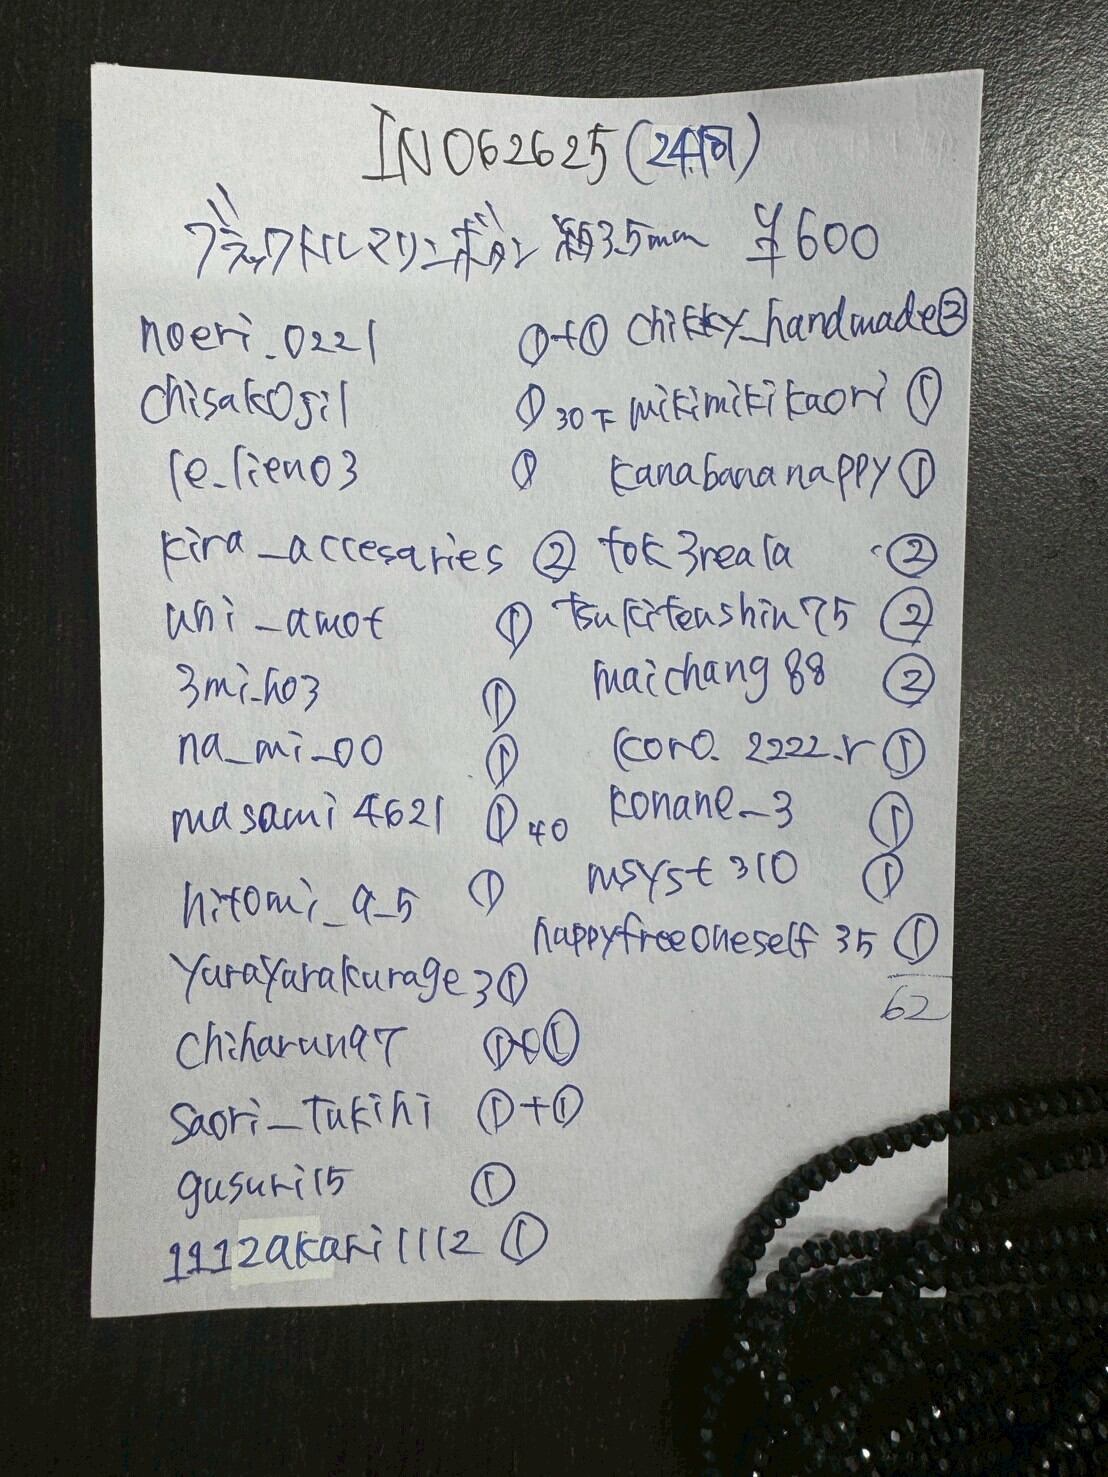 IN062625(24時)
ブラックトルマリンボタン 約3.5mm ¥600
noeri_0221 ①+①
chisak0gi1 ①30下
le_lien03 ①
kira_accesaries ②
uni_amot ①
3mi_h03 ①
na_mi_00 ①
masami4621 ①40
hitomi_a_5 ①
yurayurakurage3①
chiharun97 ①+①
saori_tukihi ①+①
gusuri15 ①
1112akari1112 ①
chikky_handmade②
mikimikikaori ①
kanabananappy①
tok3reala ②
tsukitenshin75 ②
maichang88 ②
koro.2222.r①
konane_3 ①
msyst310 ①
happyfreeoneself35①
62